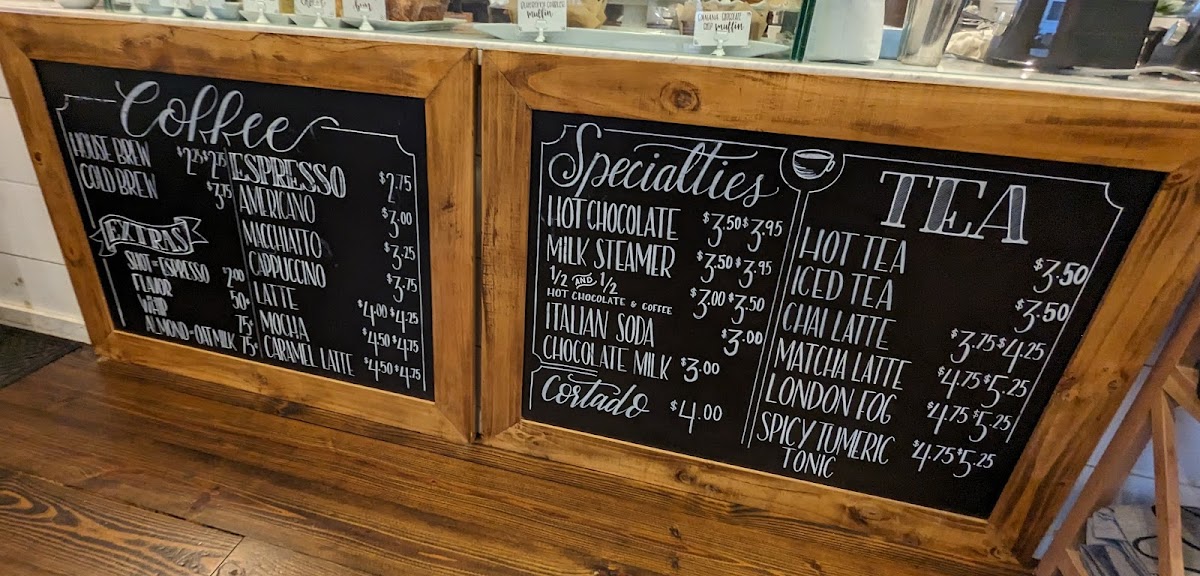 muffin
BANANA CHOCOLATE
CHIP muffin
Coffee
HOUSE BREW $2.25 $2.75
COLD BREW $3.75
EXTRAS
SHOT OF ESPRESSO 2.00
FLAVOR 50¢
WHIP 75¢
ALMOND OR OAT MILK 75¢
ESPRESSO $2.75
AMERICANO $3.00
MACCHIATO $3.25
CAPPUCCINO $3.75
LATTE $4.00 $4.25
MOCHA $4.50 $4.75
CARAMEL LATTE $4.50 $4.75
Specialties
HOT CHOCOLATE $3.50 $3.95
MILK STEAMER $3.50 $3.95
1/2 AND 1/2 $3.00 $3.50
HOT CHOCOLATE & COFFEE
ITALIAN SODA $3.00
CHOCOLATE MILK $3.00
Cortado $4.00
TEA
HOT TEA $3.50
ICED TEA $3.50
CHAI LATTE $3.75 $4.25
MATCHA LATTE $4.75 $5.25
LONDON FOG $4.75 $5.25
SPICY TUMERIC $4.75 $5.25
TONIC